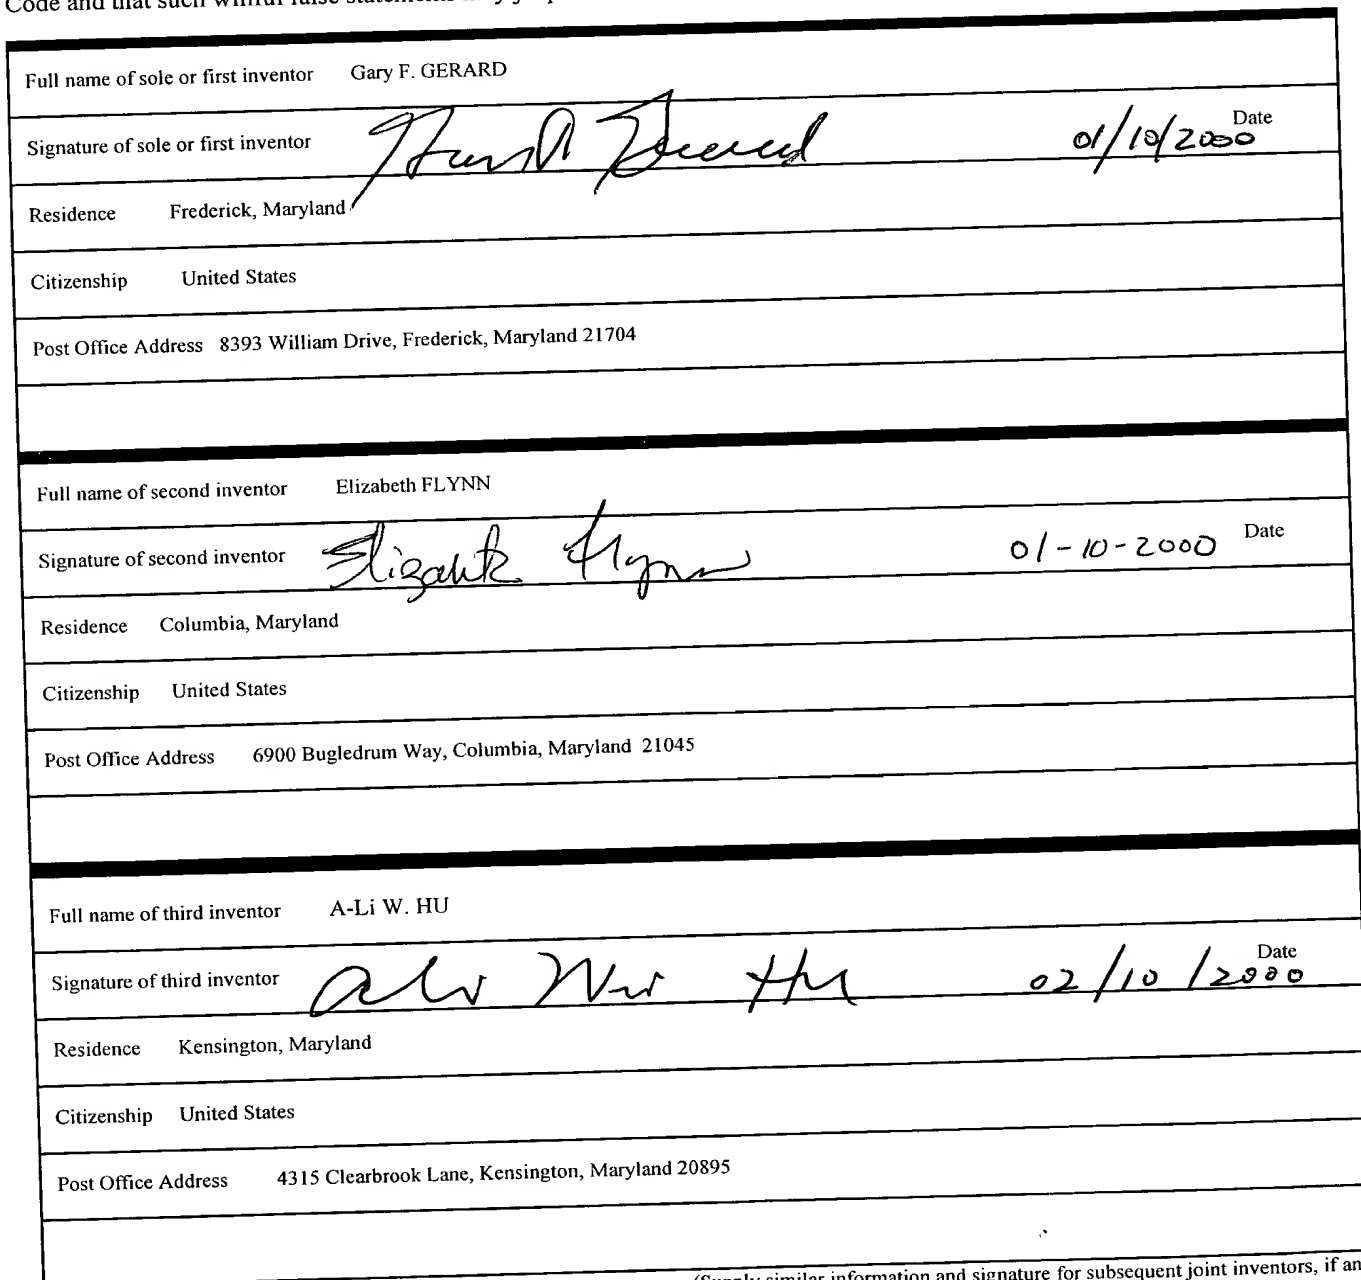 Code and that such willful false statements may
Full name of sole or first inventor Gary F. GERARD
Signature of sole or first inventor 01/10/2000 Date
Residence Frederick, Maryland
Citizenship United States
Post Office Address 8393 William Drive, Frederick, Maryland 21704
Full name of second inventor Elizabeth FLYNN
Signature of second inventor Elizabeth Flynn 01-10-2000 Date
Residence Columbia, Maryland
Citizenship United States
Post Office Address 6900 Bugledrum Way, Columbia, Maryland 21045
Full name of third inventor A-Li W. HU
Signature of third inventor Hu 02/10/2000 Date
Residence Kensington, Maryland
Citizenship United States
Post Office Address 4315 Clearbrook Lane, Kensington, Maryland 20895
(Supply similar information and signature for subsequent joint inventors, if an